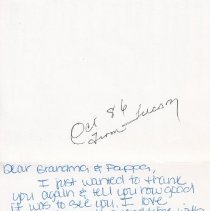 Oct 86
from Tucson
Dear Grandma & Pappa,
I just wanted to thank
you again & tell you how good
it was to see you. I love